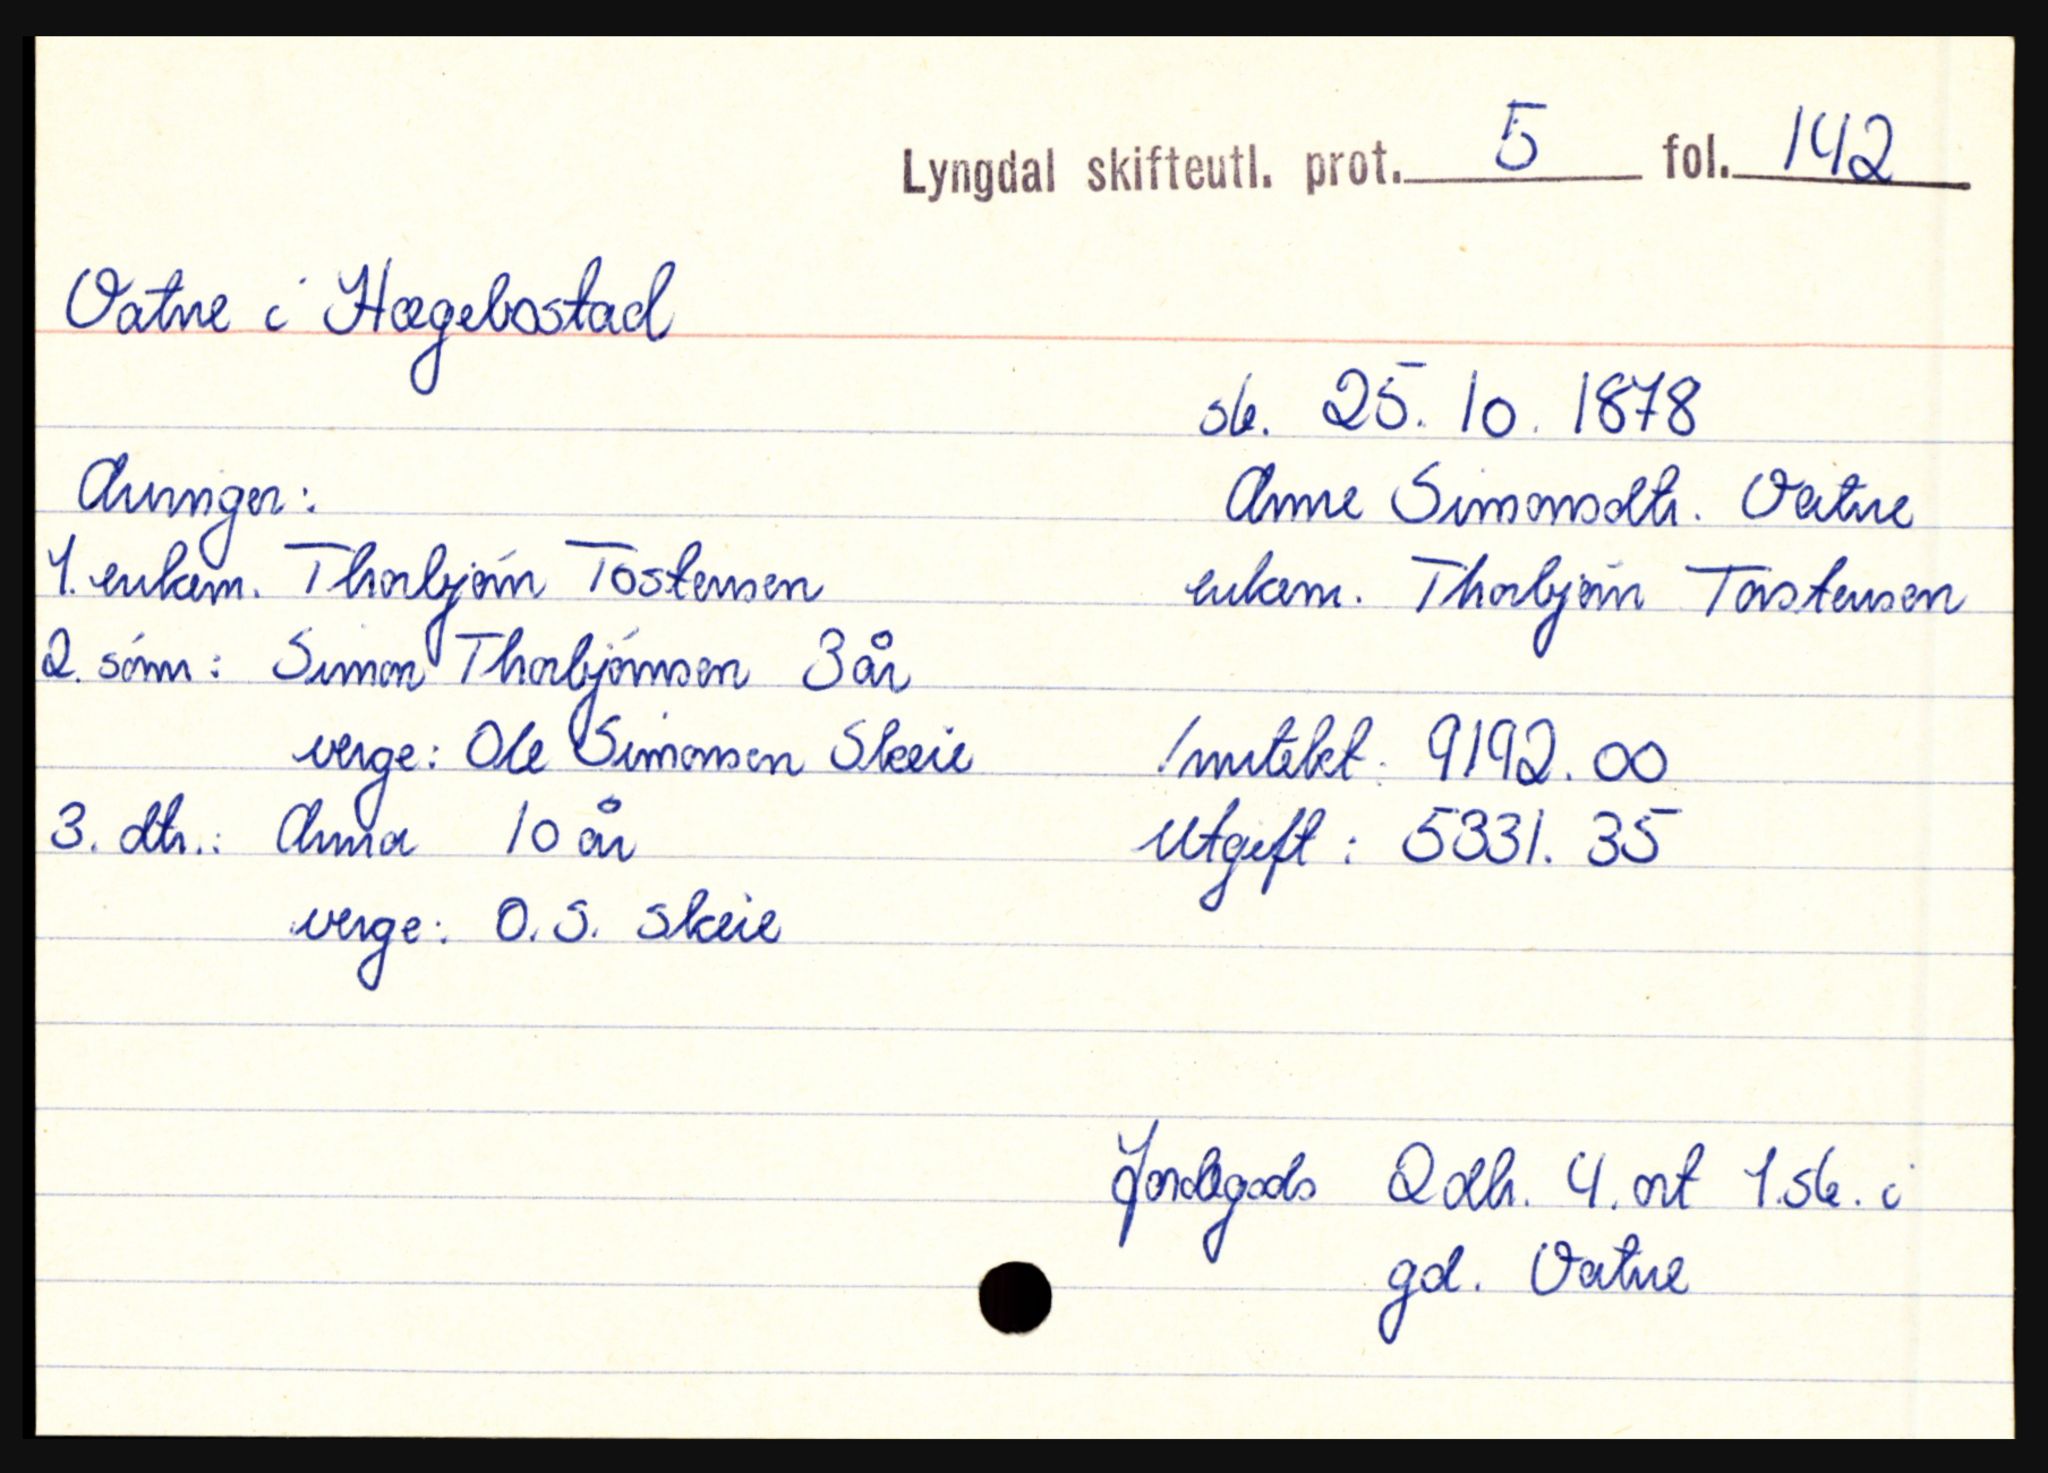 Lyngdal skifteutl. prot. 5 fol. 142
Vatne i Hægebostad
sk. 25. 10. 1878
Anne Simonsdtr. Vatne
enkem. Thorbjørn Torstensen
Arvinger:
1. enkem. Thorbjørn Tostensen
2. sønn: Simon Thorbjørnsen 3 år
verge: Ole Simonsen Skeie
3. dtr.: Anna 10 år
verge: O. S. Skeie
Inntekt: 9192.00
Utgift: 5331.35
Jordegods 2 dlr. 4. ort 1. sk. i
gd. Vatne